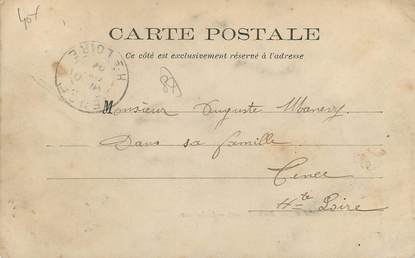 CARTE POSTALE
Ce côté est exclusivement réservé à l'adresse
Hte LOIRE
Monsieur Auguste
Dans sa famille
Tence
Hte Loire